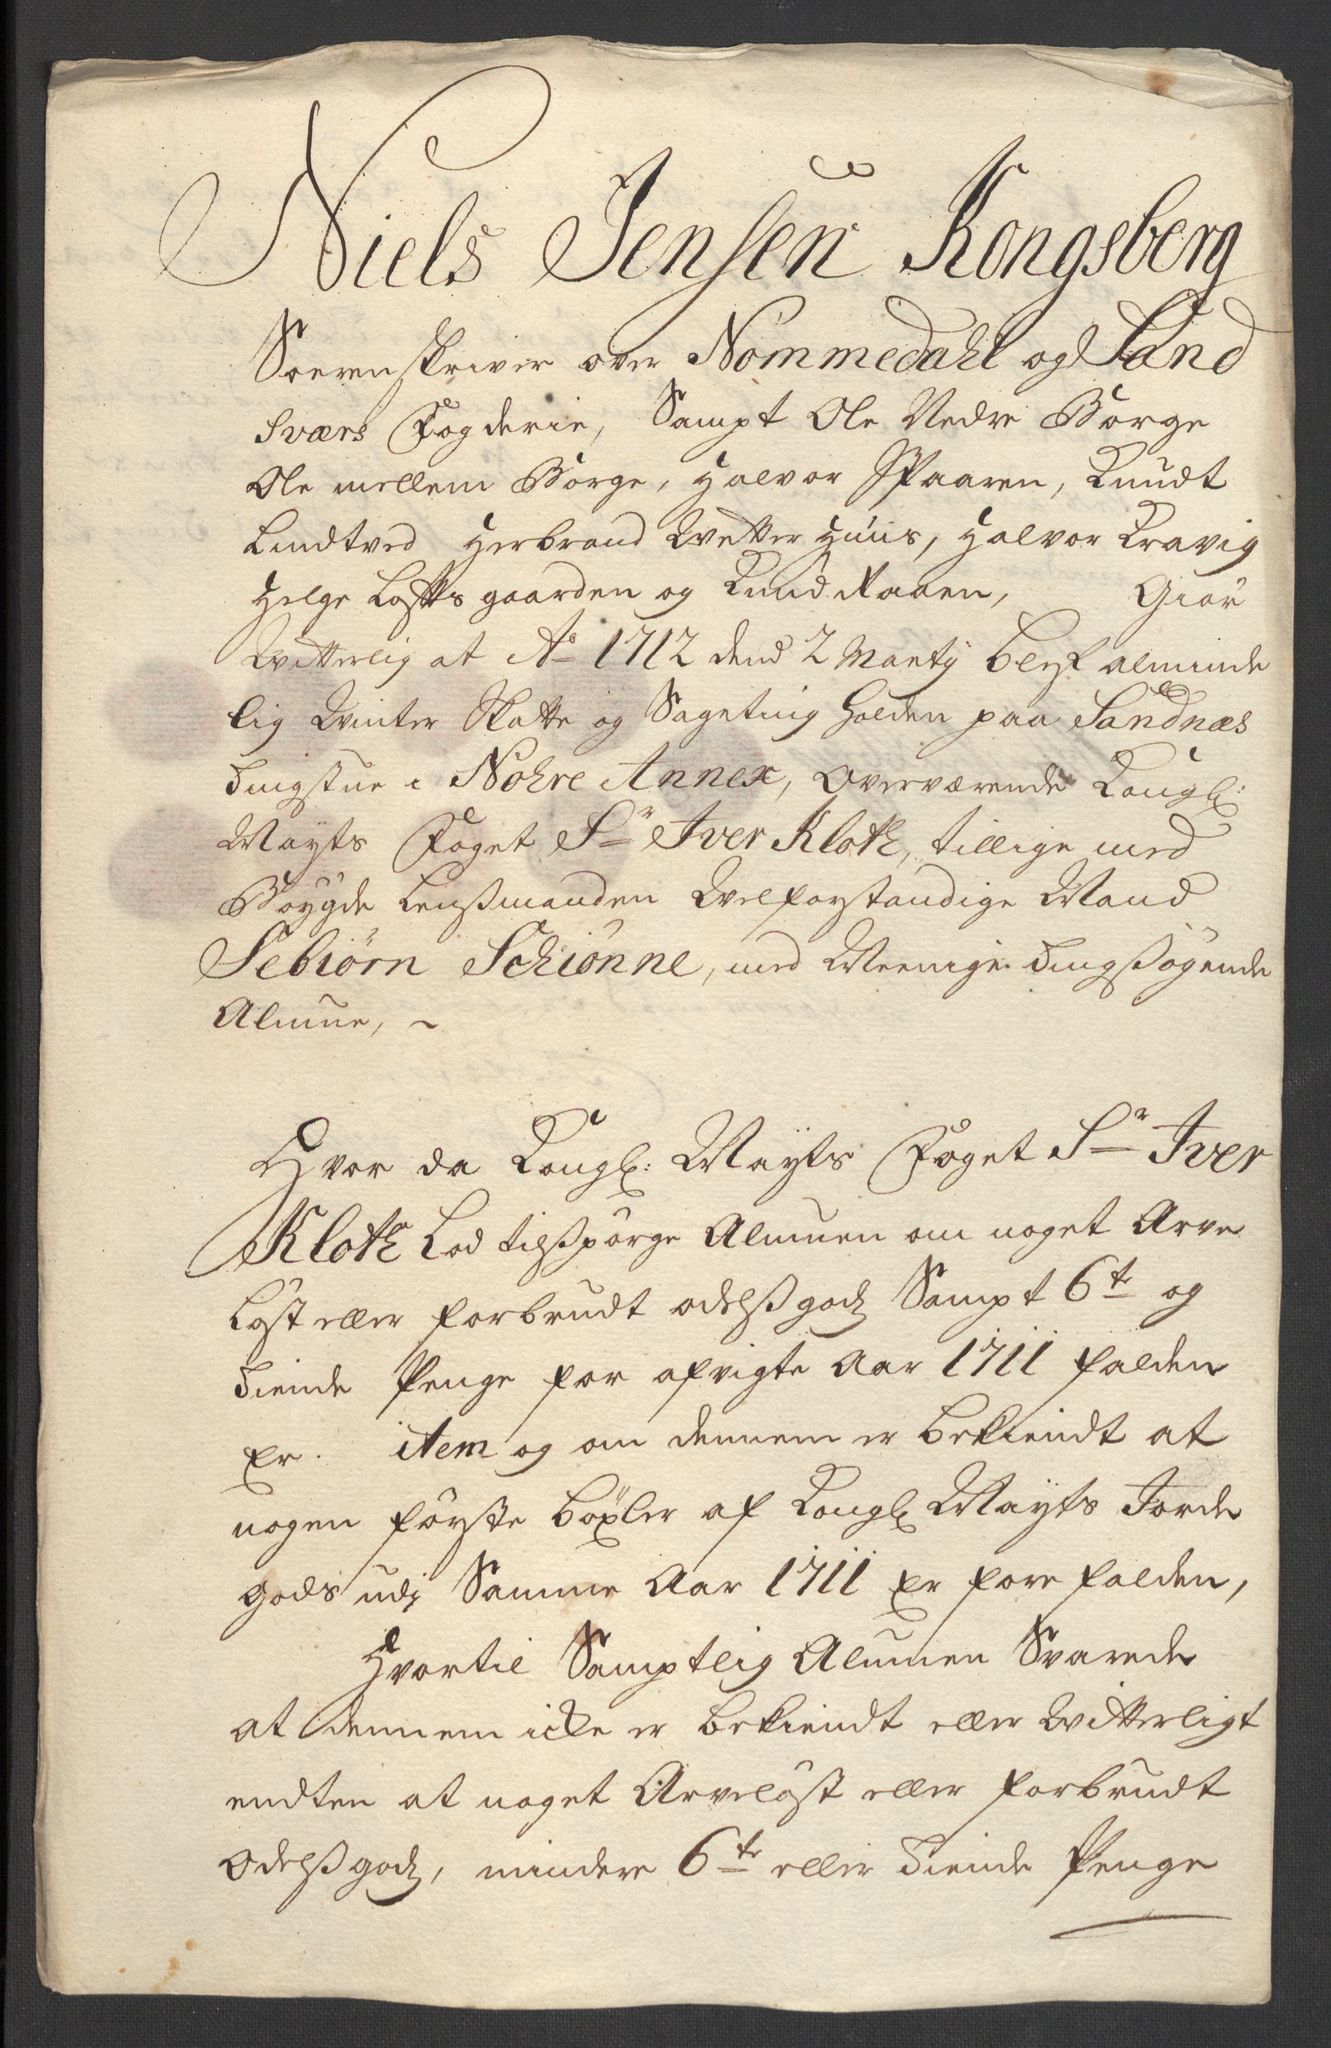 Niels Jensen Kongsberg
Soerenskriver over Nommedahl og Sand
Sværs Fogderie, Sampt Ole Nedre Borge
Ole mellem Borge, Halvor Spaaren, Knudt
Lindtved Herbrand Wetterhuus, Halvor Kravig
Helge Lofftsgaarden og Knud Raaen, Giør
Witterlig at Ao 1712 dend 2 Marty blef alminde
lig Winter Skatte og Sageting holden paa Sandnæs
Tingstue i Nohre Annex, Overværende Kongl:
Mayts Foget Sr Iver Kloth, tillige med
Bøygde Lenßmanden Welforstandige Mand
Sebiørn Schiønne, med Meenige Tingsøgende
Almue, ~
Hvor da Kongl: Mayts Foget Sr Iver
Kloth Lod tilspørge Almuen om noget Arve
Løst eller forbrudt odelsgodz Sampt 6te og
Tiende Penge for afvigte Aar 1711 falden
er. item og om dennem er bekiendt at
nogen første böxler af Kongl Mayts Jorde
gods udj Samme Aar 1711 er forefalden,
Hvortil Samptlig Almuen Svarede
at dennem icke er bekiendt eller Witterligt
endten at noget Arveløst eller forbrudt
Odelsgodz, mindere 6te eller Tiende Penge